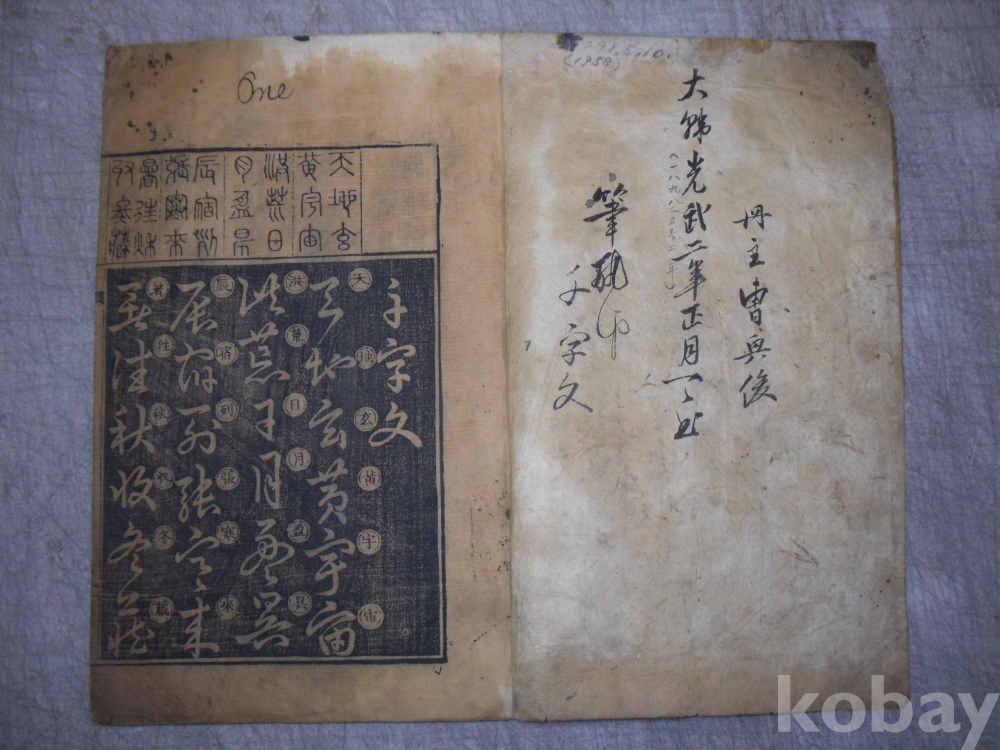 291.5.10.
(1958)
冊主曺興俊
大韓光武二年正月
一八九八
筆執印
千字文
One
天地玄
黃宇宙
洪荒日
月盈昃
辰宿列
張寒來
暑往秋
收冬藏
千字文
天地玄黃宇宙
天地玄黃宇宙
洪荒日月盈昃
洪荒日月盈昃
辰宿列張寒來
辰宿列張寒來
暑往秋收冬藏
暑往秋收冬藏
kobay